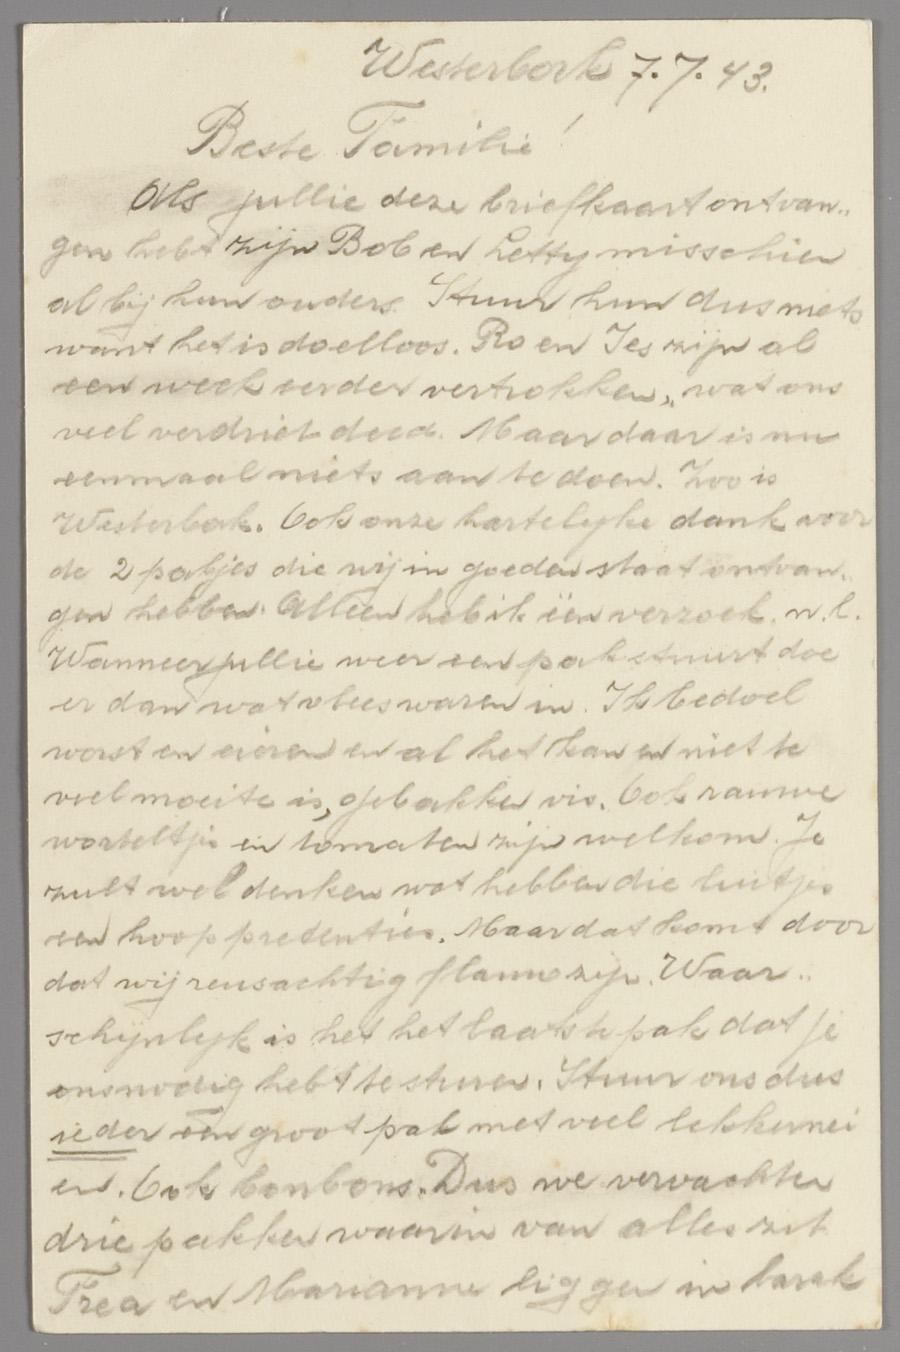 Westerbork 7.7.43.
Beste Familie!
Als jullie deze briefkaart ontvan„
gen hebt zijn Bob en Hetty misschien
al bij hun ouders. Stuur hun dus niets
want het is doelloos. Ro en Jes zijn al
een week eerder vertrokken, wat ons
veel verdriet deed. Maar daar is nu
eenmaal niets aan te doen. Zoo is
Westerbork. Ook onze hartelijke dank voor
de 2 pakjes die wij in goeden staat ontvan„
gen hebben. Alleen heb ik één verzoek. n.l.
Wanneer jullie weer een pak stuurt doe
er dan wat vleeswaren in. Ik bedoel
worst en eieren en al het kan en niet te
veel moeite is, gebakken vis. Ook rauwe
worteltjes en tomaten zijn welkom. Je
zult wel denken wat hebben die luitjes
een hoop predenties. Maar dat komt door
dat wij reusachtig flauw zijn. Waar„
schijnlijk is het het laatste pak dat je
ons nodig hebt te sturen. Stuur ons dus
ieder een groot pak met veel lekkernei
en. Ook bonbons. Dus we verwachten
drie pakken waarin van alles zit
Frea en Marianne liggen in barak